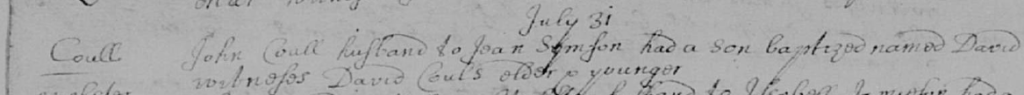 July 31
Coull John Coull husband to Jean Symson had a son baptized named David
witneses David Couls elder & younger